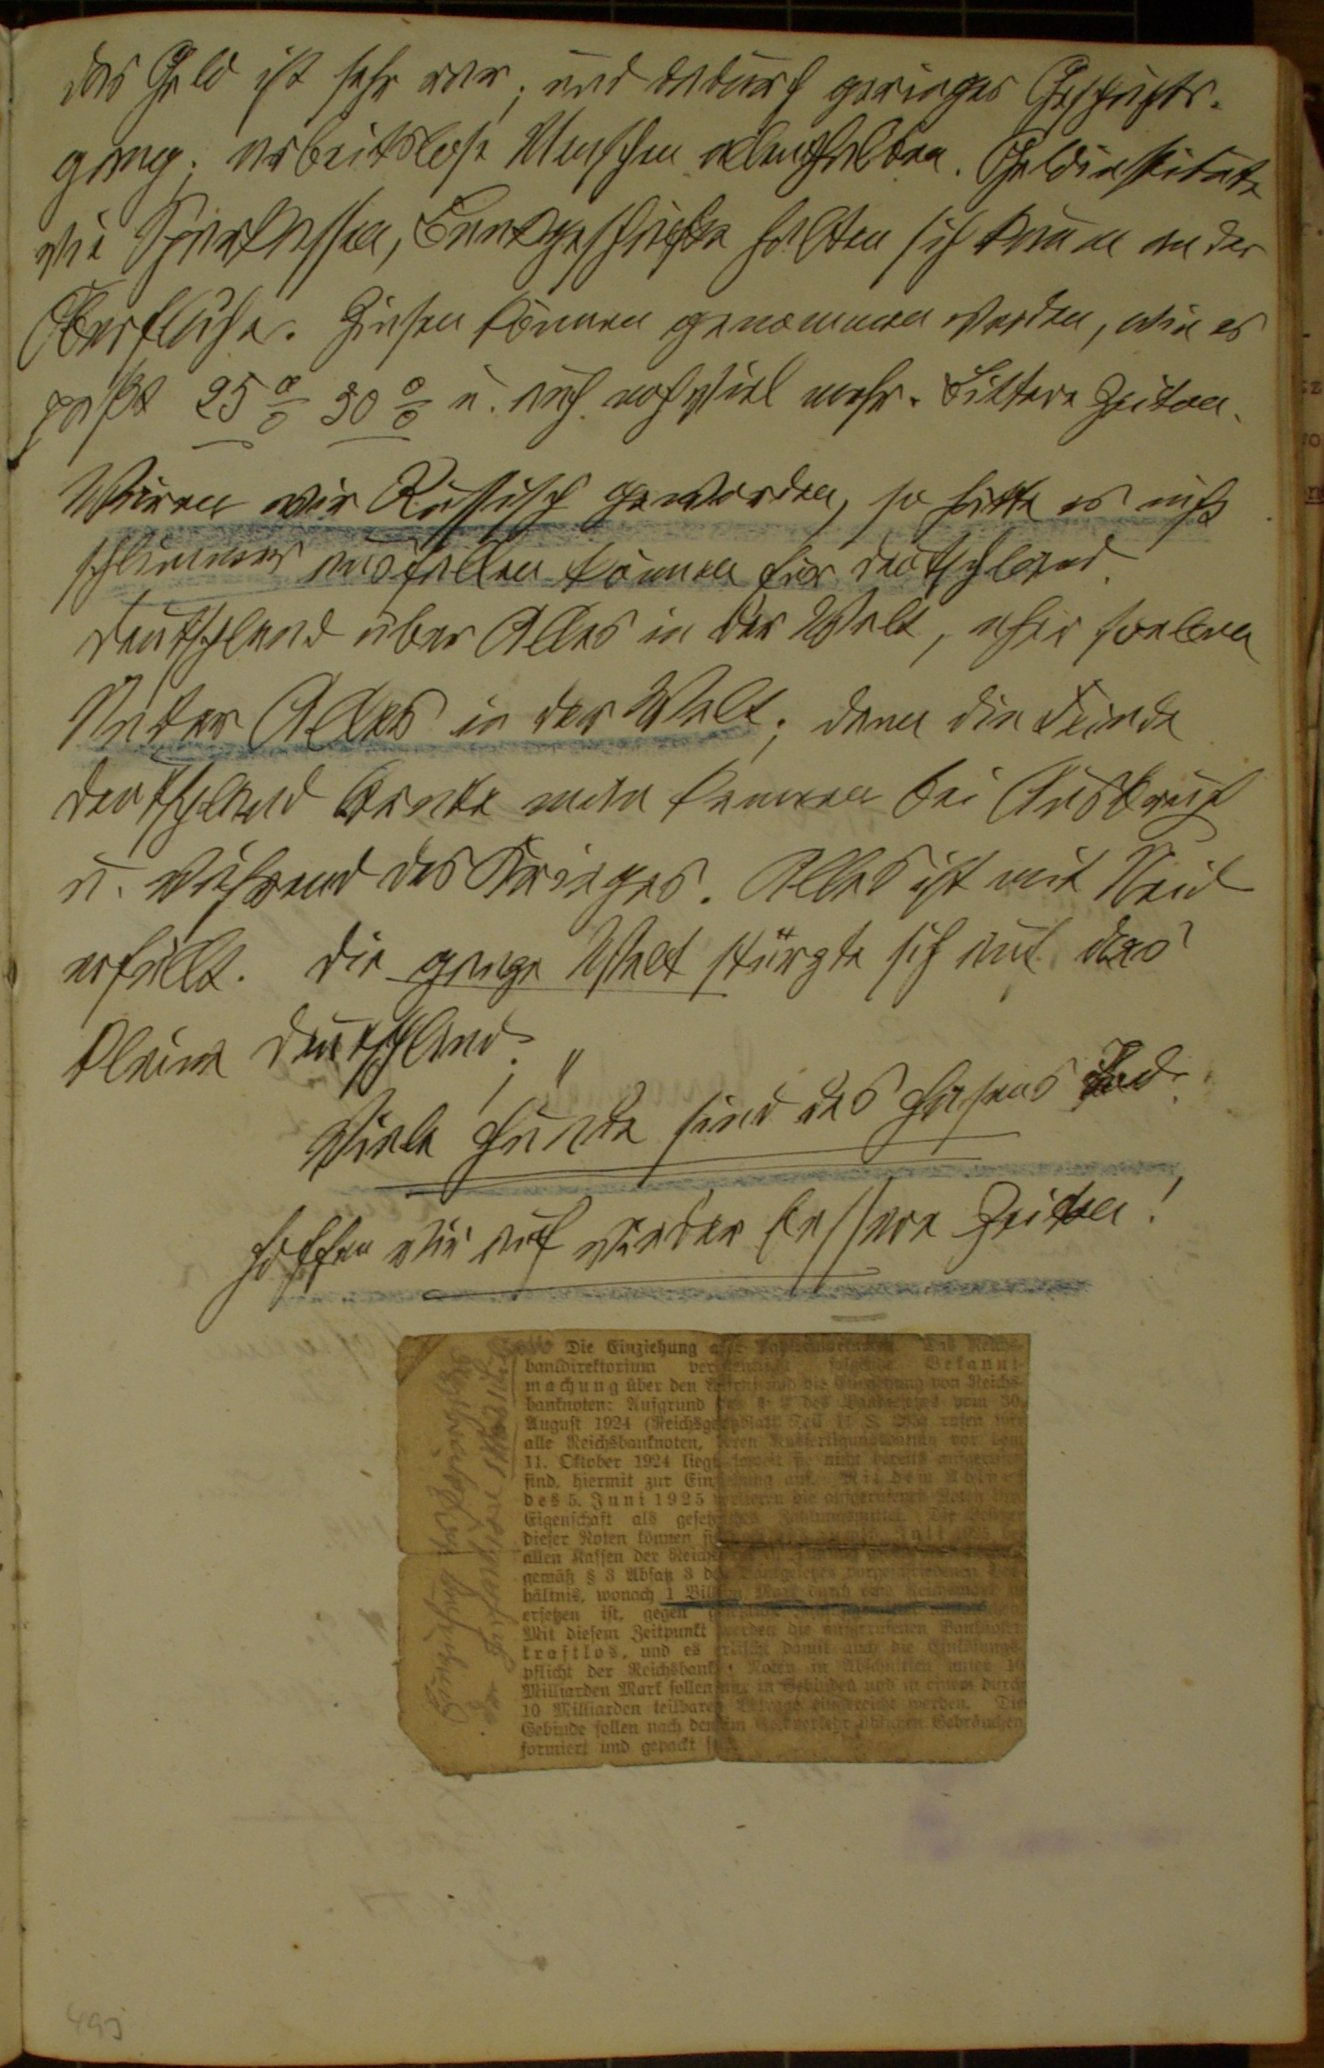 das Geld ist sehr rar, und dadurch geringes Geschäfts-
gang; arbeitslose Menschen allenthalben. Geldinstitute
wie Sparkassen, Bankgeschäfte halten sich kaum an der
Oberfläche. Zinsen können genommen werden, wie es
paßt 25 % 30 % u. auch noch viel mehr. Bittere Zeiten.
Wären wir Russisch geworden, so hätte es nicht
schlimmer ausfallen können für Deutschland.
Deutschland über Alles in der Welt,
Unter Alles in der Welt; denn die Feinde
Deutschland lernte man kennen bei Ausbruch
u. während des Krieges. Alles ist mit Neid
erfüllt. Die ganze Welt stürzte sich auf das
kleine Deutschland.
Viele Hunde sind des Hasens Tod.
Hoffen wir auf wieder bessere Zeiten!
Die Einziehung Das Reichs-
bankdirektorium folgende Bekannt-
machung über den und die Einziehung von Reichs-
banknoten: Aufgrund des § des Bankgesetzes vom 30.
August 1924 (Reichsgesetzblatt Teil II S. rufen wir
alle Reichsbanknoten, deren Ausfertigungsdatum vor dem
11. Oktober 1924 liegt, soweit sie nicht bereits aufgerufen
sind, hiermit zur Einziehung auf. Mit dem Ablauf
des 5. Juni 1925 verlieren die aufgerufenen Noten ihre
Eigenschaft als gesetzliches Zahlungsmittel. Die Besitzer
dieser Noten können Juli
allen Kassen der Reichsbank
gemäß § 3 Absatz 3 des Bankgesetzes vorgeschriebenen Ver-
hältnis, wonach 1 Billion Mark durch eine Reichsmark zu
ersetzen ist, gegen
Mit diesem Zeitpunkt werden die aufgerufenen Banknoten
kraftlos, und es erlischt damit auch die Einlösungs-
pflicht der Reichsbank. Noten in Abschnitten unter 10
Milliarden Mark sollen nur in Gebinden und in einem durch
10 Milliarden teilbaren Betrage eingereicht werden. Die
Gebinde sollen nach den im Geldverkehr üblichen Gebräuchen
formiert und gepackt sein.
495